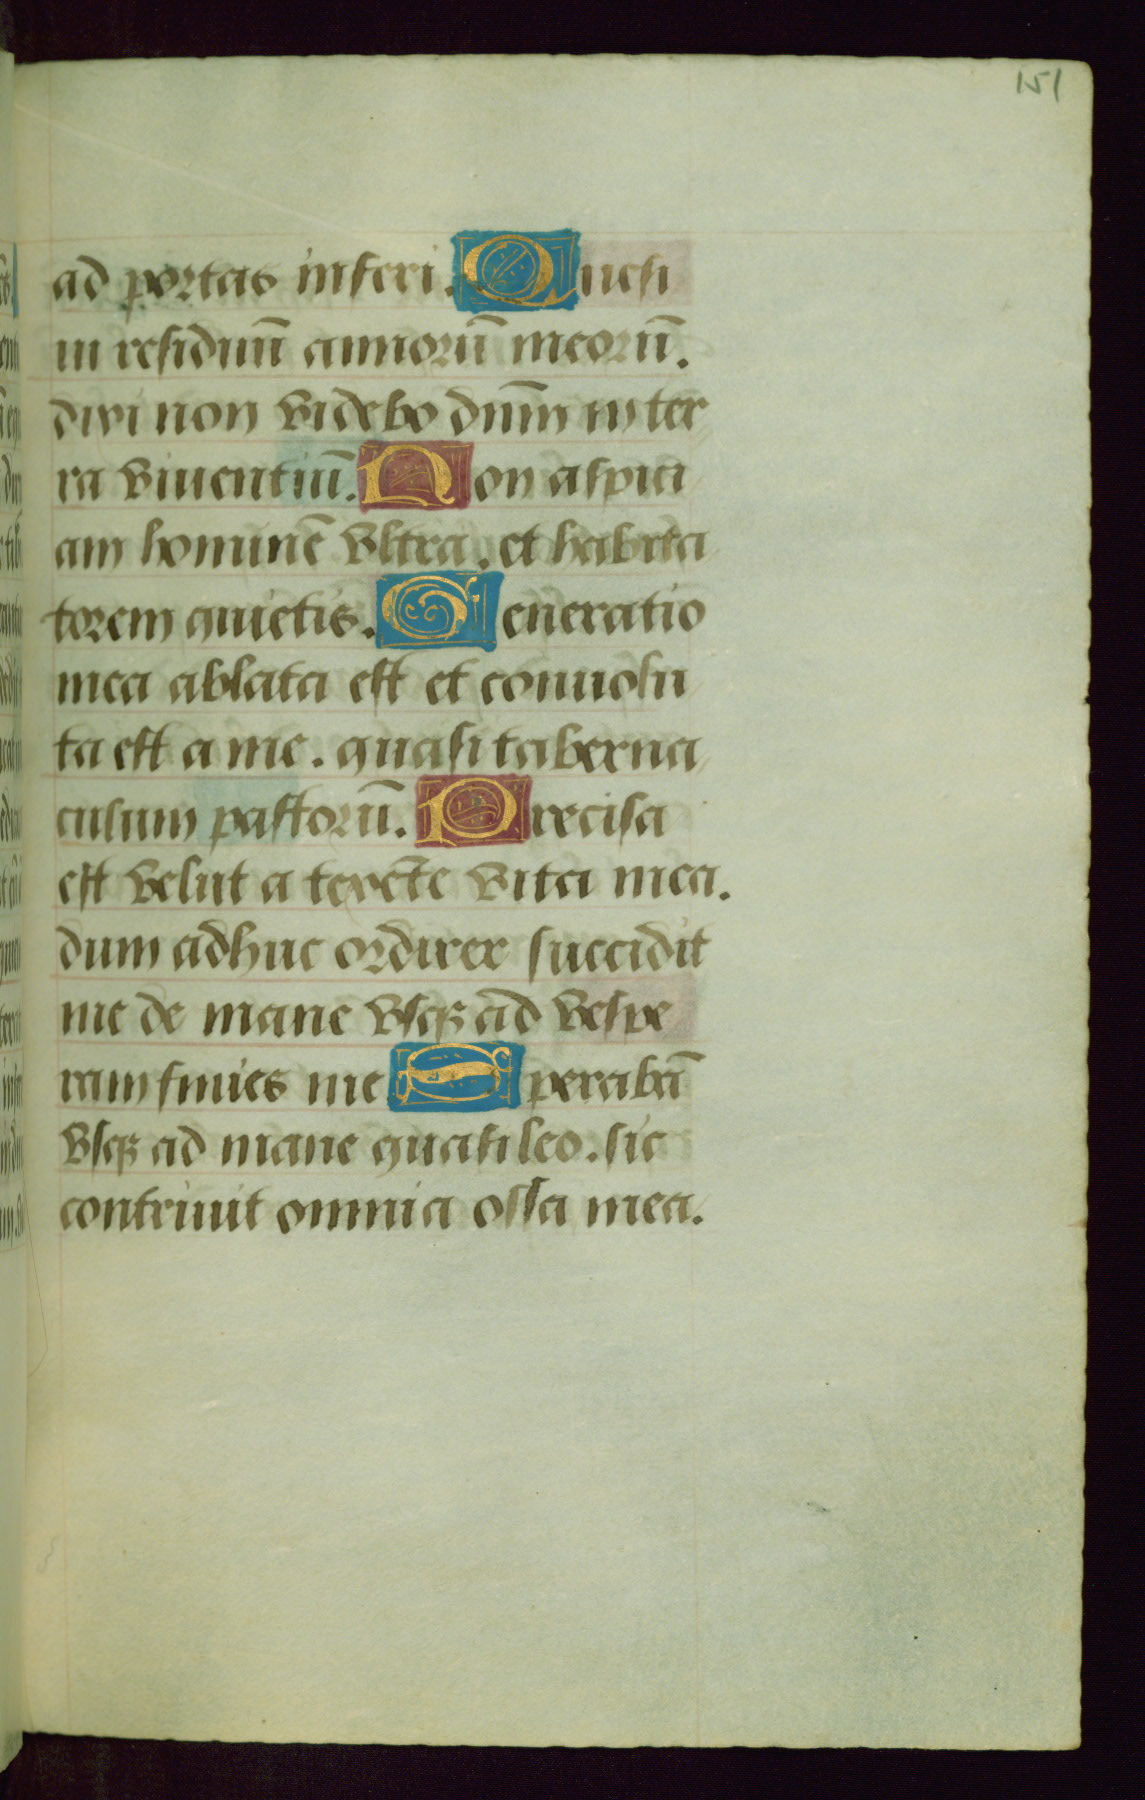 151
ad portas inferi. Quesi
ui residuũ annorũ meorũ.
dixi non videbo dnm̃ in ter
ra viuentiũ. Non aspici
am hominẽ vltra. et habita
torem quietis. Generatio
mea ablata est et conuolu
ta est a me. quasi taberna
culum pastorũ. Precisa
est velut a texẽte vita mea.
dum adhuc ordirer succidit
me de mane vsqꝫ ad vespe
ram finies me Sperabã
vsqꝫ ad mane quasi leo. sic
contriuit omnia ossa mea.